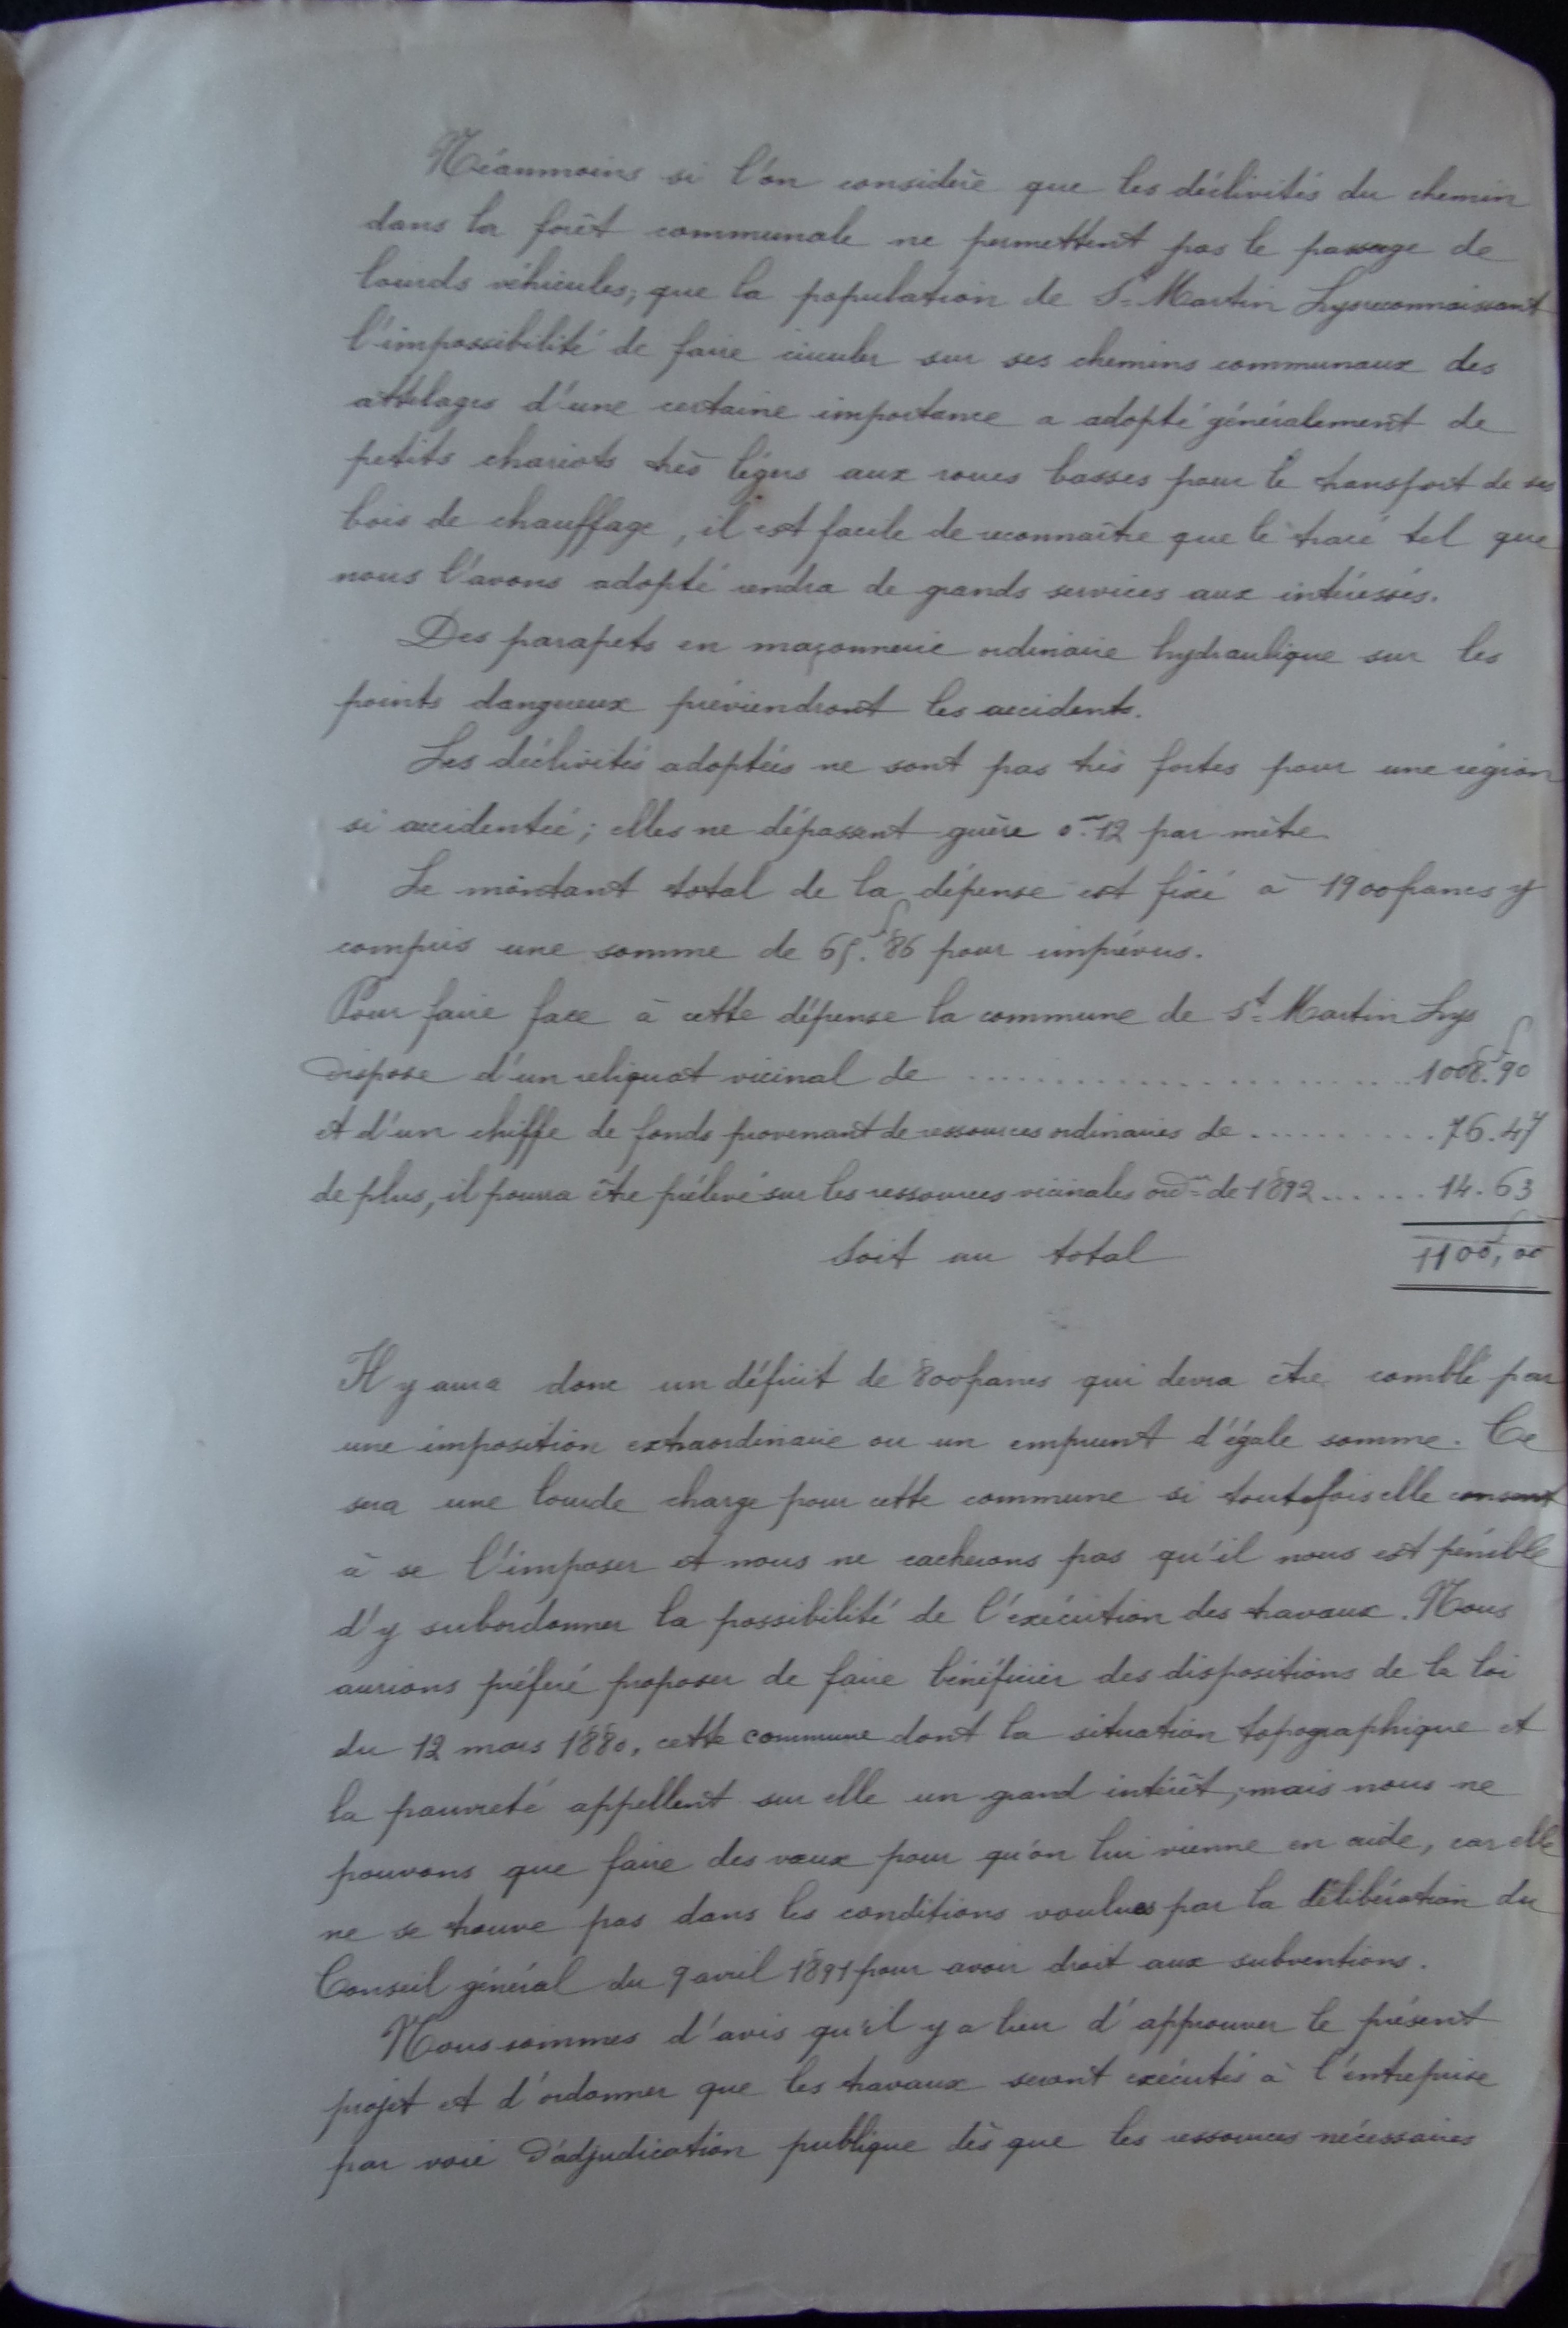 Néanmoins si l'on considère que les déclivités du chemin
dans la forêt communale ne permettent pas le passage de
lourds véhicules; que la population de St Martin Lys reconnaissant
l'impossibilité de faire circuler sur ses chemins communaux des
attelages d'une certaine importance a adopté généralement de
petits chariots très légers aux roues basses pour le transport de ses
bois de chauffage, il est facile de reconnaître que le tracé tel que
nous l'avons adopté rendra de grands services aux intéressés.
Des parapets en maçonnerie ordinaire hydraulique sur les
points dangereux préviendront les accidents.
Les déclivités adoptées ne sont pas très fortes pour une région
si accidentée; elles ne dépassent guère 0m.12 par mètre.
Le montant total de la dépense est fixé à 1900 francs y
compris une somme de 65f.86 pour imprévus.
Pour faire face à cette dépense la commune de St Martin Lys
dispose d'un reliquat vicinal de .......................... 1008f.90
et d'un chiffe de fonds provenant de ressources ordinaires de ........... 76.47
de plus, il pourra être prélevé sur les ressources vicinales ordres de 1892 ...... 14.63
Soit au total 1100f,00
Il y aura donc un déficit de 800 francs qui devra être comblé par
une imposition extraordinaire ou un emprunt d'égale somme. Ce
sera une lourde charge pour cette commune si toutefois elle consent
à se l'imposer et nous ne cacherons pas qu'il nous est pénible
d'y subordonner la possibilité de l'exécution des travaux. Nous
aurions préféré proposer de faire bénéficier des dispositions de la loi
du 12 mars 1880, cette commune dont la situation topographique et
la pauvreté appellent sur elle un grand intérêt, mais nous ne
pouvons que faire des vœux pour qu'on lui vienne en aide, car elle
ne se trouve pas dans les conditions voulues par la délibération du
Conseil général du 9 avril 1891 pour avoir droit aux subventions.
Nous sommes d'avis qu'il y a lieu d'approuver le présent
projet et d'ordonner que les travaux seront exécutés à l'entreprise
par voie d'adjudication publique dès que les ressources nécessaires